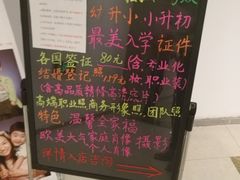 幼升小.小升初
最美入学证件
各国签证80元(含专业化
结婚登记照139元妆,职业装)
(含高品质精修高清底片)
高端职业照.商务形象照.团队照
特色:温馨全家福
欧美大片家庭肖像摄影
个人肖像
详情入店咨询